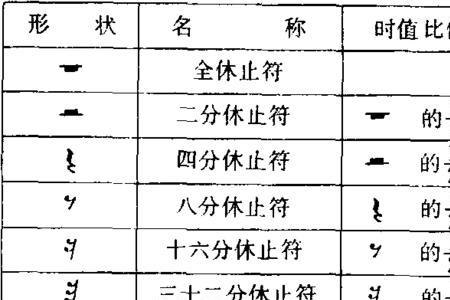 形 状 名 称 时值比
全休止符
二分休止符 的
四分休止符 的
八分休止符 的
十六分休止符 的
三十二分休止符 的